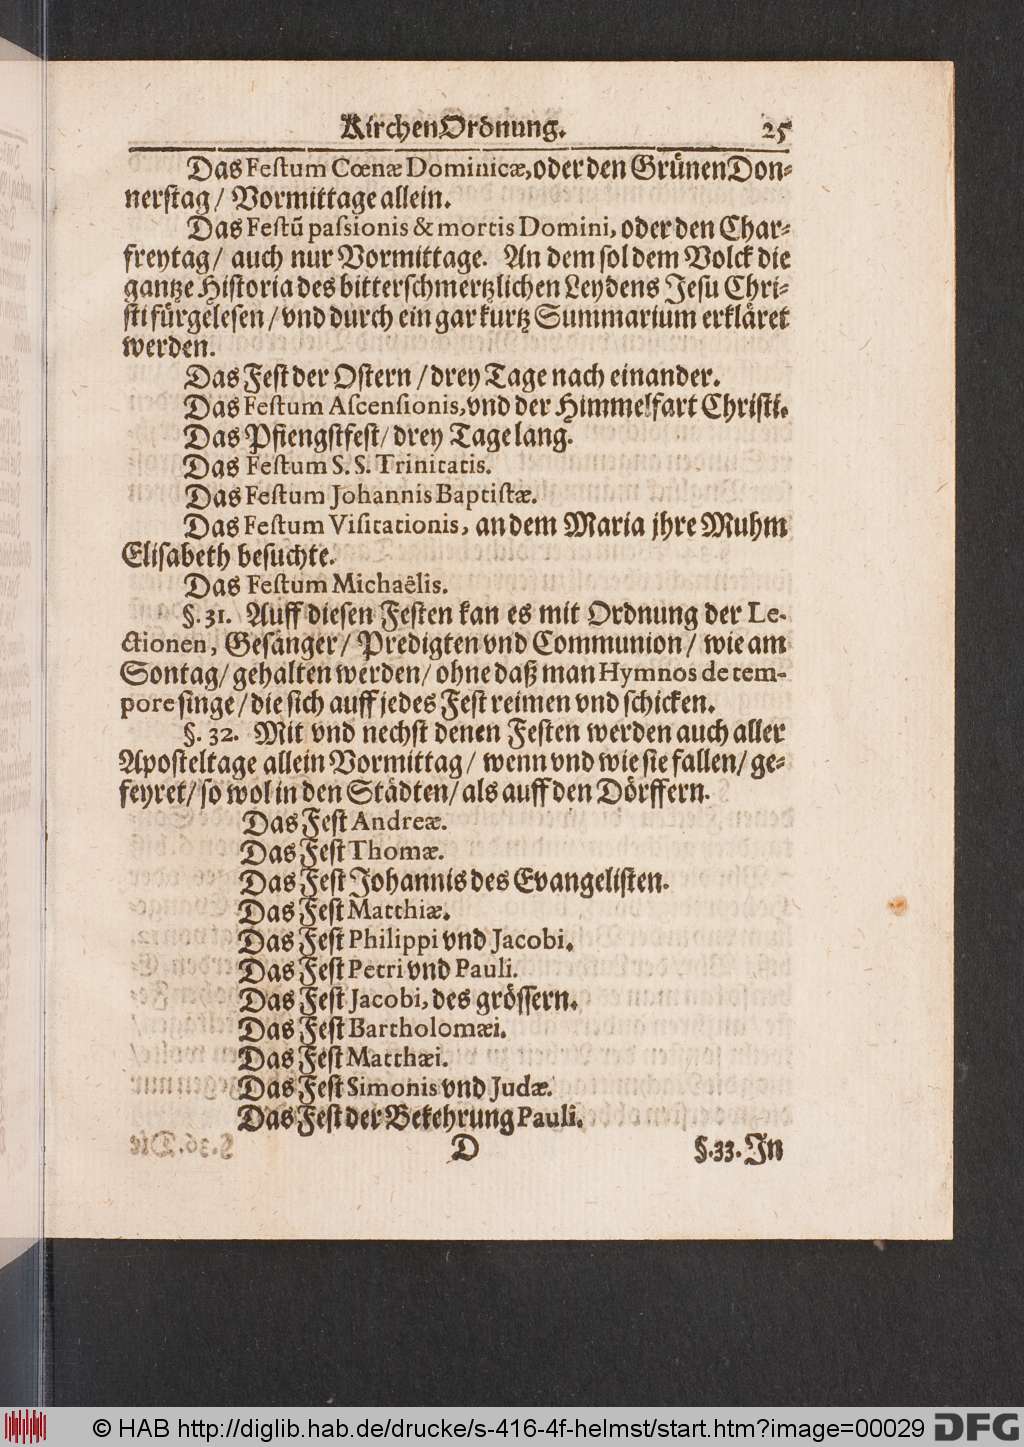 KirchenOrdnung. 25
Das Festum Cœnæ Dominicæ, oder den Grünen Don-
nerstag / Vormittage allein.
Das Festū passionis & mortis Domini, oder den Char-
freytag / auch nur Vormittage. An dem sol dem Volck die
gantze Historia des bitterschmertzlichen Leydens Jesu Chri-
sti fürgelesen / vnd durch ein gar kurtz Summarium erkläret
werden.
Das Fest der Ostern / drey Tage nach einander.
Das Festum Ascensionis, vnd der Himmelfart Christi.
Das Pfiengstfest / drey Tage lang.
Das Festum S. S. Trinitatis.
Das Festum Johannis Baptistæ.
Das Festum Visitationis, an dem Maria jhre Muhm
Elisabeth besuchte.
Das Festum Michaëlis.
§. 31. Auff diesen Festen kan es mit Ordnung der Le-
ctionen, Gesänger / Predigten vnd Communion / wie am
Sontag / gehalten werden / ohne daß man Hymnos de tem-
pore singe / die sich auff jedes Fest reimen vnd schicken.
§. 32. Mit vnd nechst denen Festen werden auch aller
Aposteltage allein Vormittag / wenn vnd wie sie fallen / ge-
feyret / so wol in den Städten / als auff den Dörffern.
Das Fest Andreæ.
Das Fest Thomæ.
Das Fest Johannis des Evangelisten.
Das Fest Matthiæ.
Das Fest Philippi vnd Jacobi.
Das Fest Petri vnd Pauli.
Das Fest Jacobi, des grössern.
Das Fest Bartholomæi.
Das Fest Matthæi.
Das Fest Simonis vnd Judæ.
Das Fest der Bekehrung Pauli.
D §. 33. Jn
© HAB http://diglib.hab.de/drucke/s-416-4f-helmst/start.htm?image=00029 DFG